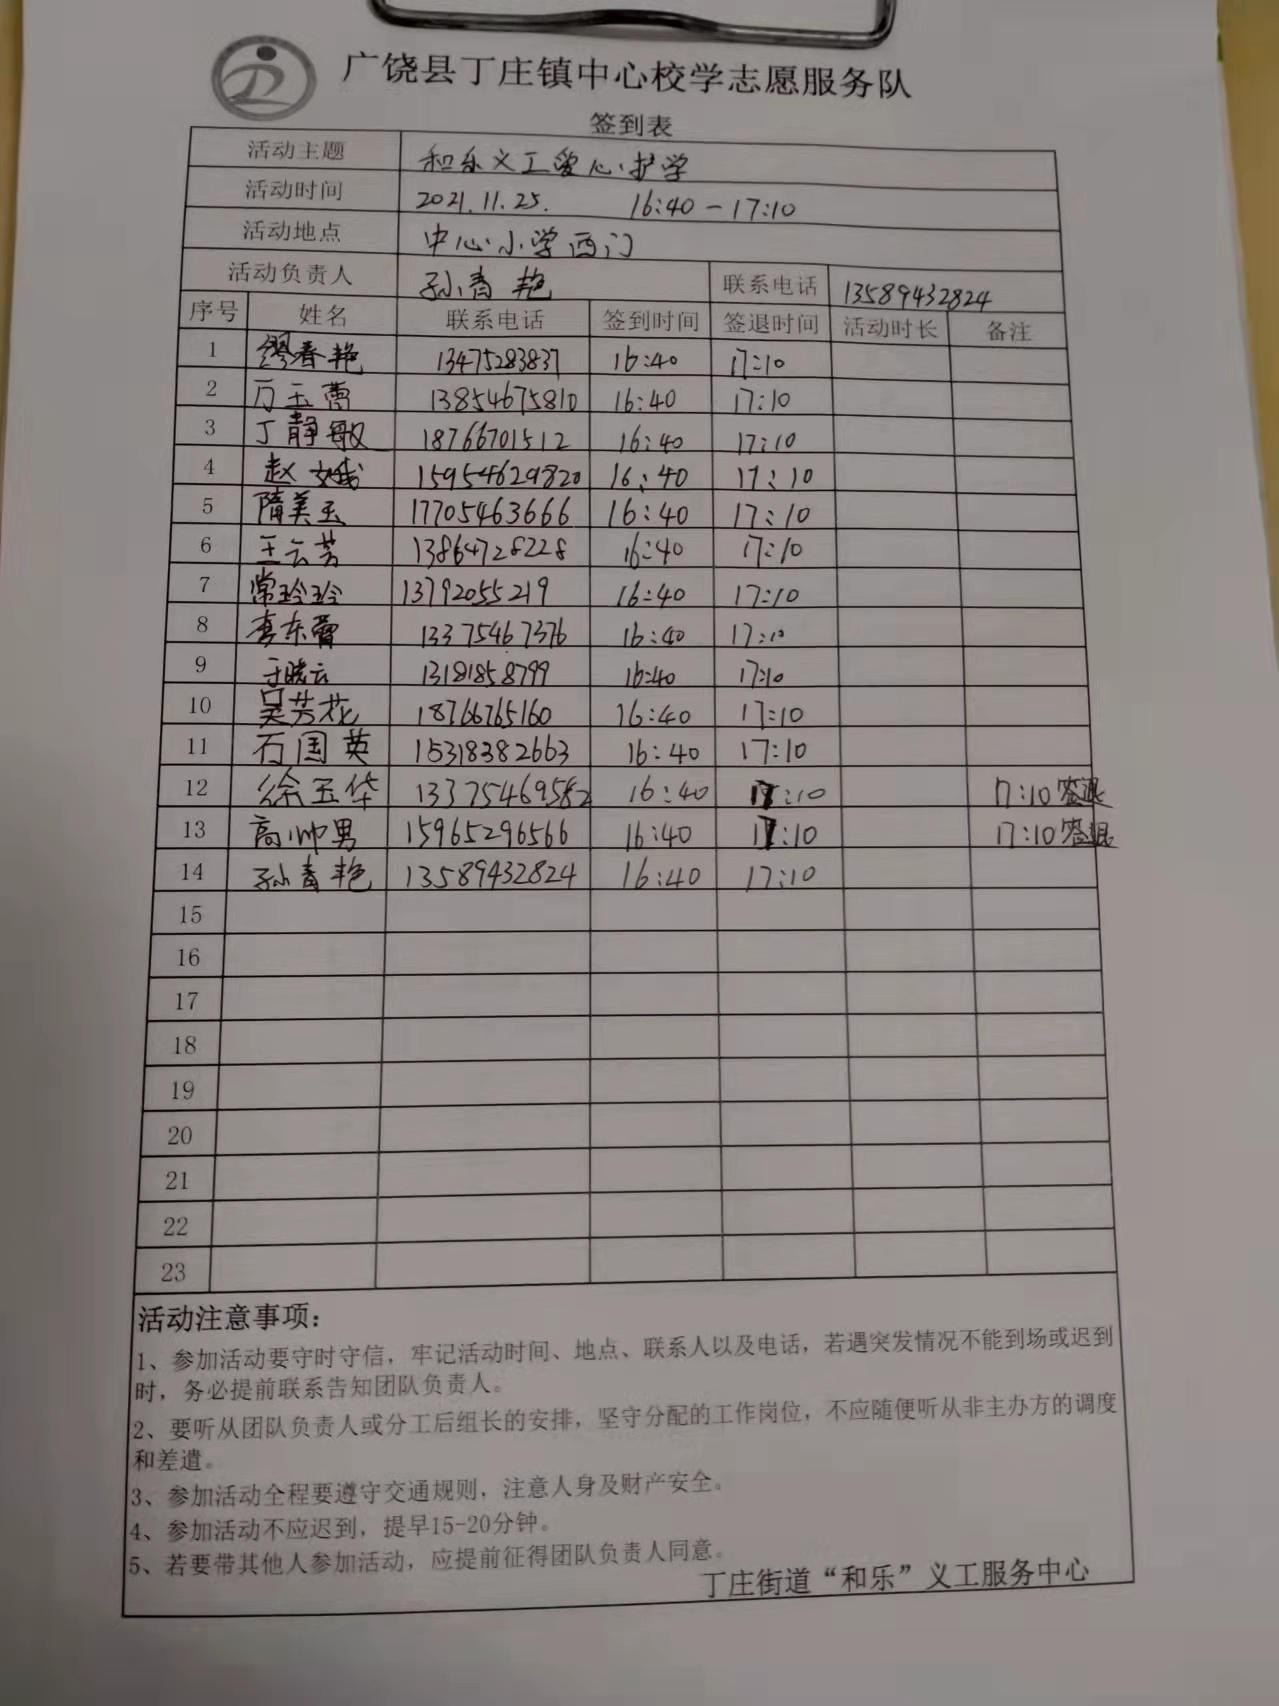 广饶县丁庄镇中心校学志愿服务队
签到表
活动主题 和乐义工爱心护学
活动时间 2021.11.25. 16:40-17:10
活动地点 中心小学西门
活动负责人 孙青艳 联系电话 13589432824
序号 姓名 联系电话 签到时间 签退时间 活动时长 备注
1 缪春艳 13475283837 16:40 17:10
2 万玉蕾 13854675810 16:40 17:10
3 丁静敏 18766701512 16:40 17:10
4 赵娥 15954629820 16:40 17:10
5 隋美玉 17705463666 16:40 17:10
6 王云芳 13864728228 16:40 17:10
7 常玲玲 13792055219 16:40 17:10
8 李东蕾 13375467376 16:40 17:10
9 于晓云 13181858799 16:40 17:10
10 吴芳花 18766765160 16:40 17:10
11 石国英 15318382663 16:40 17:10
12 徐玉华 13375469582 16:40 17:10 17:10签退
13 高帅男 15965296566 16:40 17:10 17:10签退
14 孙青艳 13589432824 16:40 17:10
15
16
17
18
19
20
21
22
23
活动注意事项：
1、参加活动要守时守信，牢记活动时间、地点、联系人以及电话，若遇突发情况不能到场或迟到
时，务必提前联系告知团队负责人。
2、要听从团队负责人或分工后组长的安排，坚守分配的工作岗位，不应随便听从非主办方的调度
和差遣。
3、参加活动全程要遵守交通规则，注意人身及财产安全。
4、参加活动不应迟到，提早15-20分钟。
5、若要带其他人参加活动，应提前征得团队负责人同意。
丁庄街道“和乐”义工服务中心